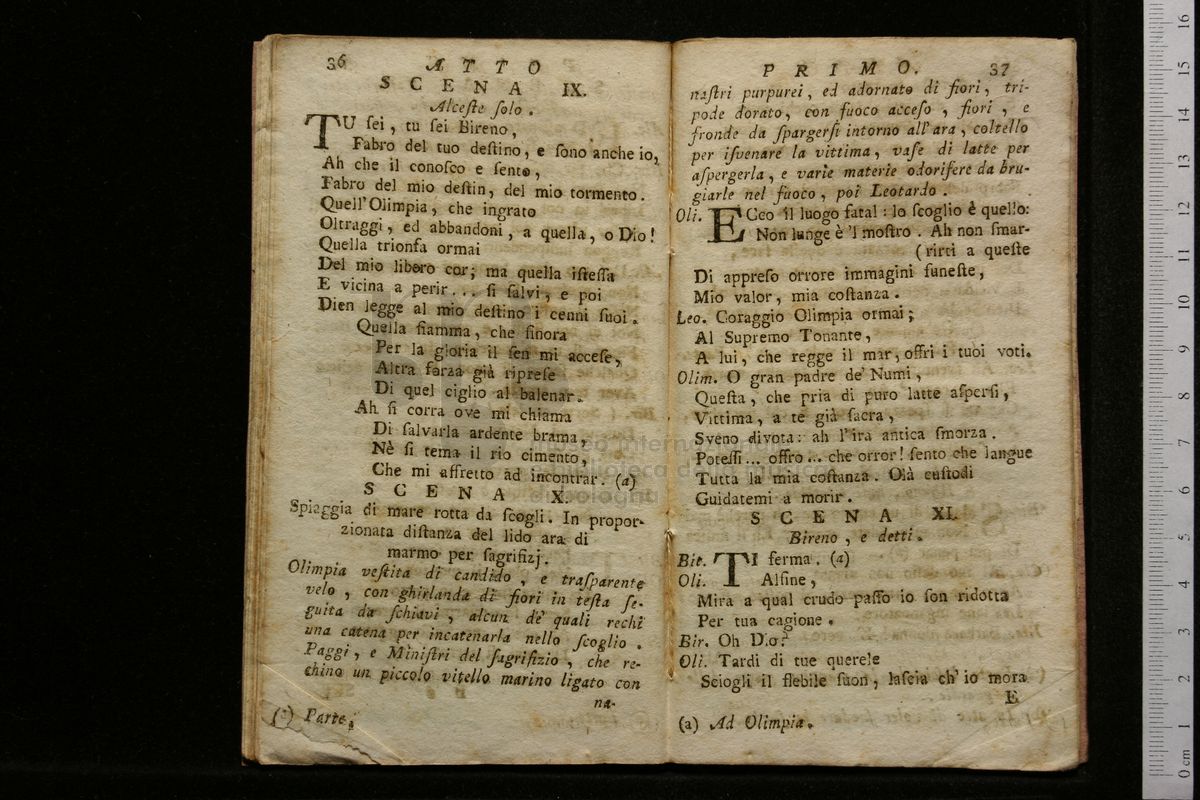 36 ATTO
SCENA IX.
Alceste solo.
TU sei, tu sei Bireno,
Fabro del tuo destino, e sono anche io,
Ah che il conosco e sento,
Fabro del mio destin, del mio tormento.
Quell'Olimpia, che ingrato
Oltraggi, ed abbandoni, a quella, o Dio!
Quella trionfa ormai
Del mio libero cor; ma quella istessa
E vicina a perir... si salvi, e poi
Dien legge al mio destino i cenni suoi.
Quella fiamma, che finora
Per la gloria il sen mi accese,
Altra forza già riprese
Di quel ciglio al balenar.
Ah si corra ove mi chiama
Di salvarla ardente brama,
Nè si tema il rio cimento,
Che mi affretto ad incontrar. (a)
SCENA X.
Spiaggia di mare rotta da scogli. In propor-
zionata distanza del lido ara di
marmo per sagrifizj.
Olimpia vestita di candido, e trasparente
velo, con ghirlanda di fiori in testa se-
guita da schiavi, alcun de' quali rechi
una catena per incatenarla nello scoglio.
Paggi, e Ministri del sagrifizio, che re-
chino un piccolo vitello marino ligato con
na-
(a) Parte.
PRIMO. 37
nastri purpurei, ed adornato di fiori, tri-
pode dorato, con fuoco acceso, fiori, e
fronde da spargersi intorno all'ara, coltello
per isvenare la vittima, vase di latte per
aspergerla, e varie materie odorifere da bru-
giarle nel fuoco, poi Leotardo.
Oli. ECco il luogo fatal: lo scoglio è quello:
Non lunge è 'l mostro. Ah non smar-
(rirti a queste
Di appreso orrore immagini funeste,
Mio valor, mia costanza.
Leo. Coraggio Olimpia ormai;
Al Supremo Tonante,
A lui, che regge il mar, offri i tuoi voti.
Olim. O gran padre de' Numi,
Questa, che pria di puro latte aspersi,
Vittima, a te già sacra,
Sveno divota: ah l'ira antica smorza.
Potessi... offro... che orror! sento che langue
Tutta la mia costanza. Olà custodi
Guidatemi a morir.
SCENA XI.
Bireno, e detti.
Bir. TI ferma. (a)
Oli. Alfine,
Mira a qual crudo passo io son ridotta
Per tua cagione.
Bir. Oh Dio?
Oli. Tardi di tue querele
Sciogli il flebile suon, lascia ch'io mora
E
(a) Ad Olimpia.
museo internazionale
e biblioteca della musica
di bologna
0 cm 1 2 3 4 5 6 7 8 9 10 11 12 13 14 15 16